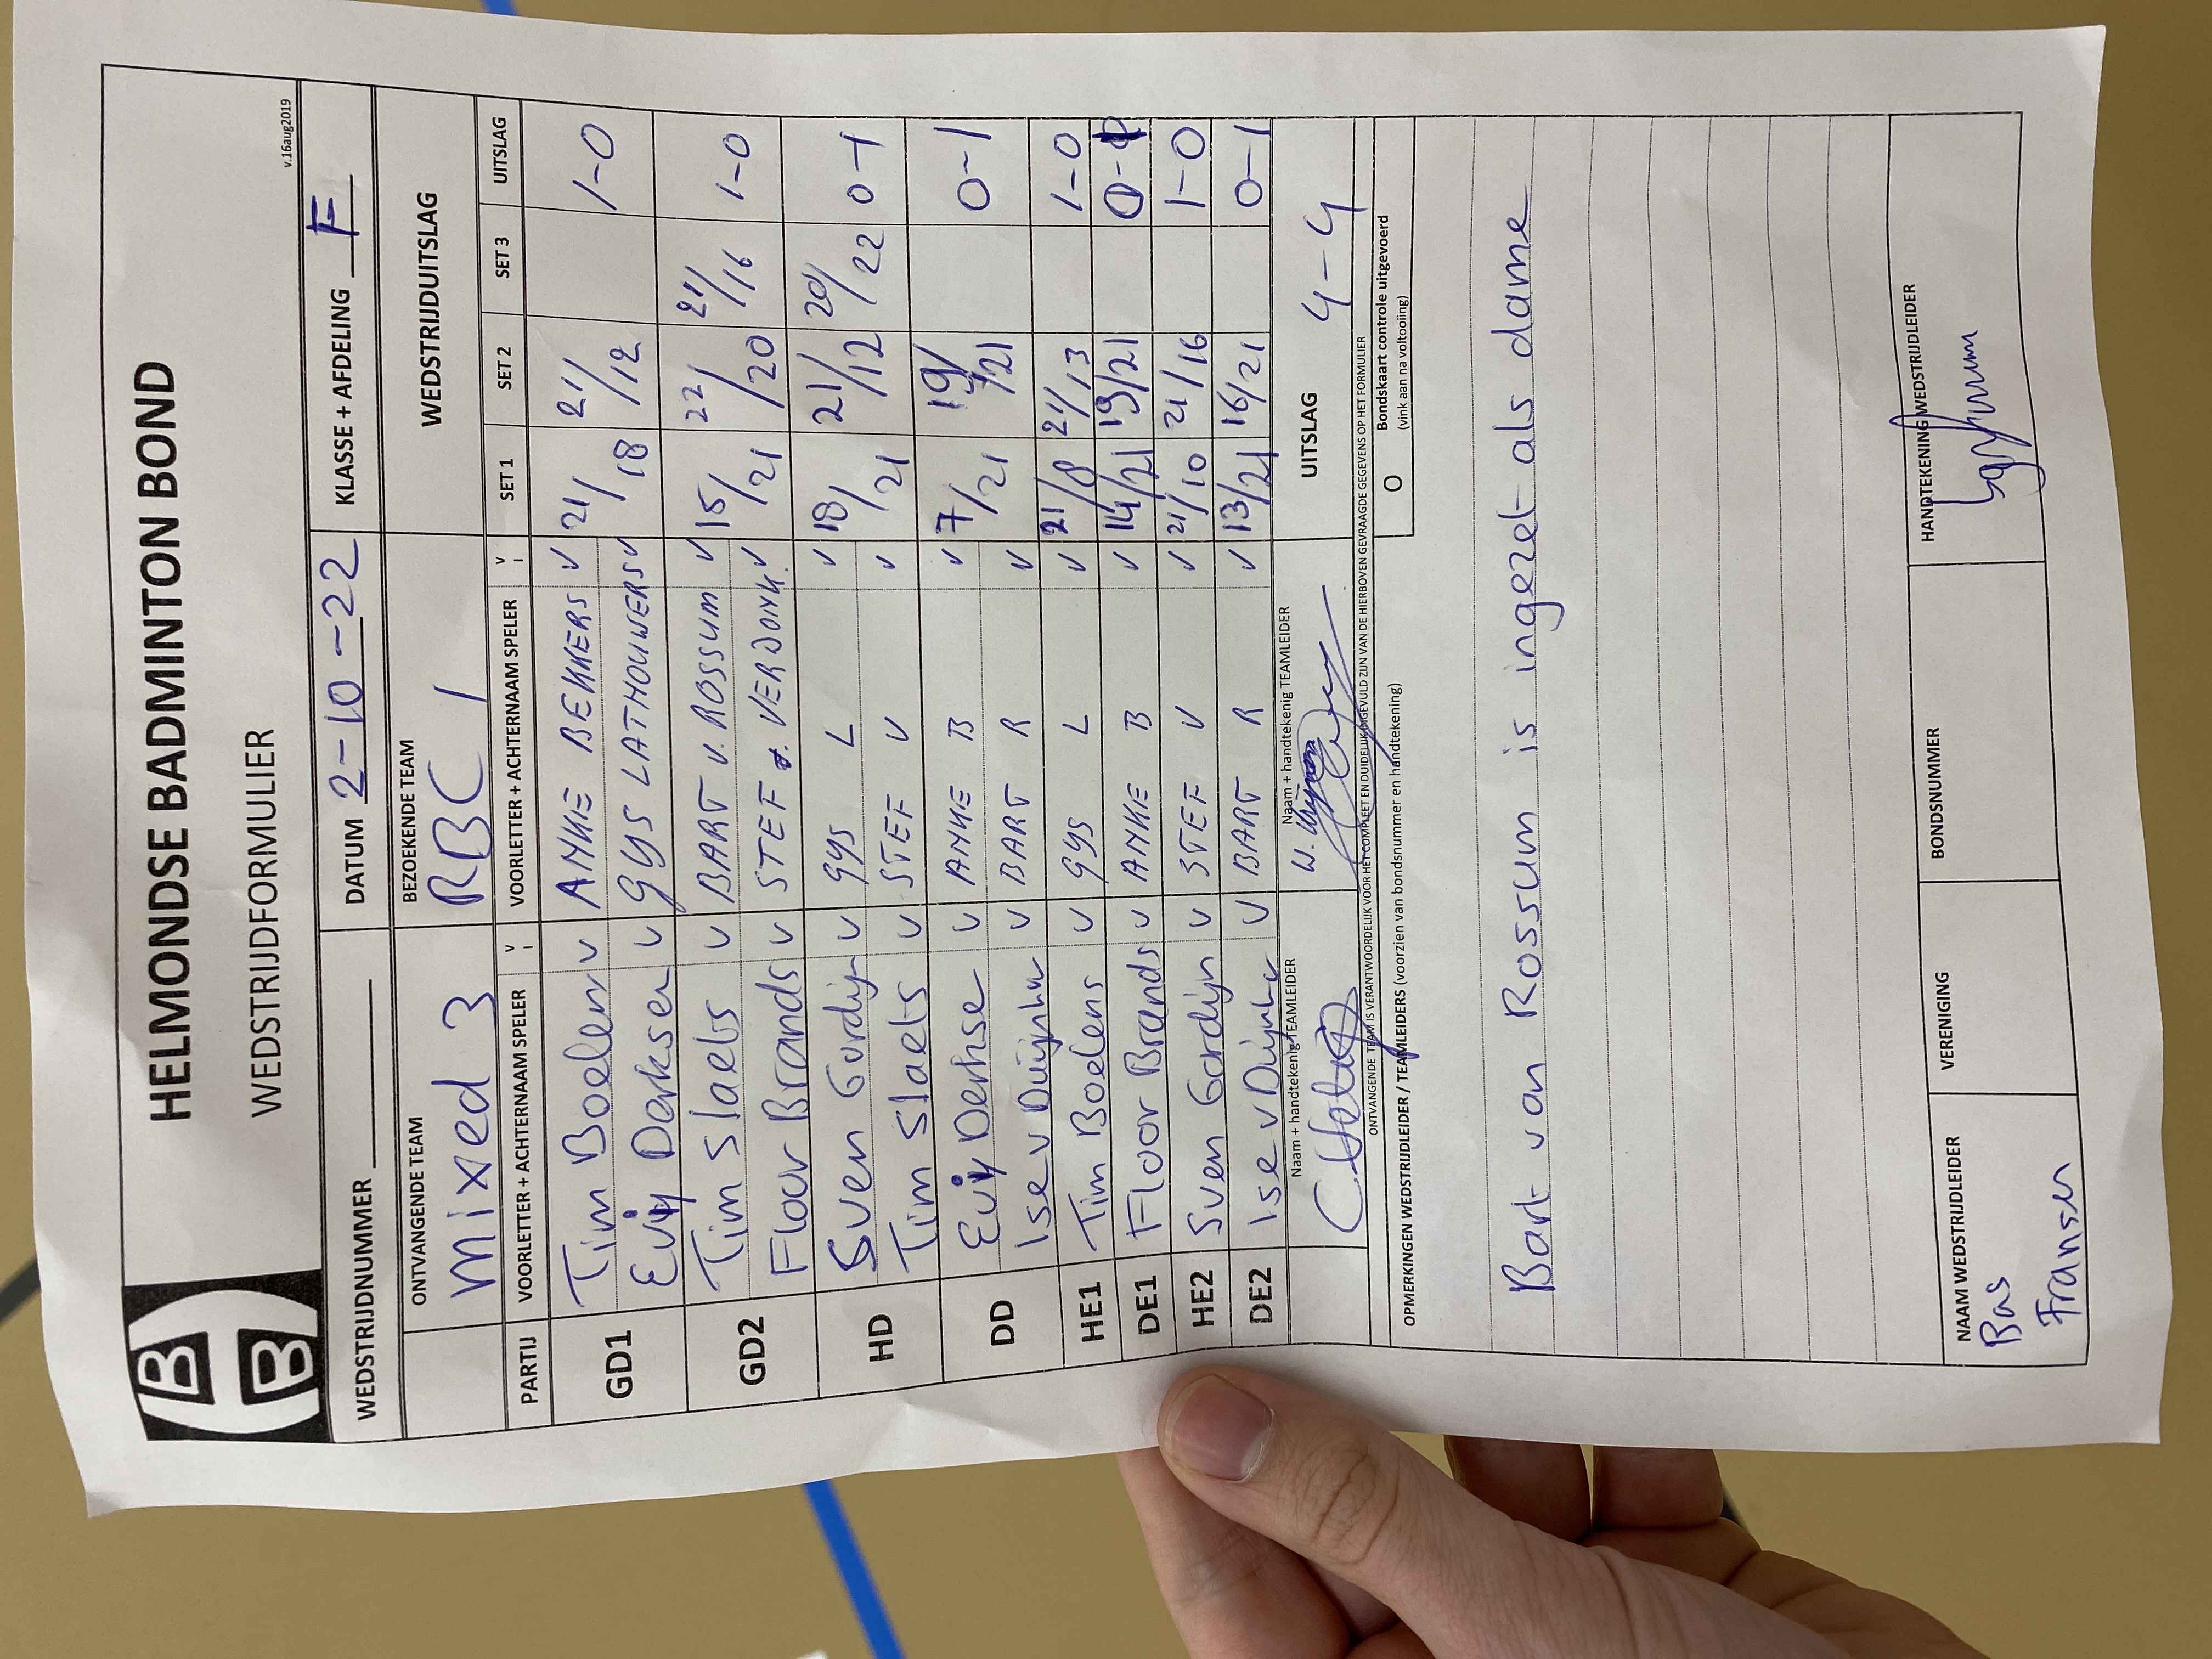 HELMONDSE BADMINTON BOND
WEDSTRIJDFORMULIER
v.16aug2019
WEDSTRIJDNUMMER DATUM 2-10-22 KLASSE + AFDELING F
ONTVANGENDE TEAM BEZOEKENDE TEAM WEDSTRIJDUITSLAG
Mixed 3 RBC 1
PARTIJ VOORLETTER + ACHTERNAAM SPELER V I VOORLETTER + ACHTERNAAM SPELER V I SET 1 SET 2 SET 3 UITSLAG
GD1 Tim Boelens v ANKE BEKKERS v 21/18 21/12 1-0
Evij Derksen v GYS LATHOUWERS v
GD2 Tim Slaets v BART v. ROSSUM v 15/21 22/20 21/16 1-0
Floor Brands v STEF VERDONK v
HD Sven Gordijn v GYS L v 18/21 21/12 20/22 0-1
Tim Slaets v STEF V v
DD Evij Derkse v ANKE B v 7/21 19/21 0-1
Ise v Duijnhv v BART R v
HE1 Tim Boelens v GYS L v 21/8 21/13 1-0
DE1 Floor Brands v ANKE B v 14/21 19/21 0-1
HE2 Sven Gordijn v STEF V v 21/10 21/16 1-0
DE2 Ise v Duijnhv v BART R v 13/21 16/21 0-1
Naam + handtekenig TEAMLEIDER Naam + handtekenig TEAMLEIDER
W. UITSLAG 4-4
ONTVANGENDE TEAM IS VERANTWOORDELIJK VOOR HET COMPLEET EN DUIDELIJK INGEVULD ZIJN VAN DE HIERBOVEN GEVRAAGDE GEGEVENS OP HET FORMULIER
OPMERKINGEN WEDSTRIJDLEIDER / TEAMLEIDERS (voorzien van bondsnummer en handtekening)
O Bondskaart controle uitgevoerd
(vink aan na voltooling)
Bart van Rossum is ingezet als dame
NAAM WEDSTRIJDLEIDER VERENIGING BONDSNUMMER HANDTEKENING WEDSTRIJDLEIDER
Bas
Fransen